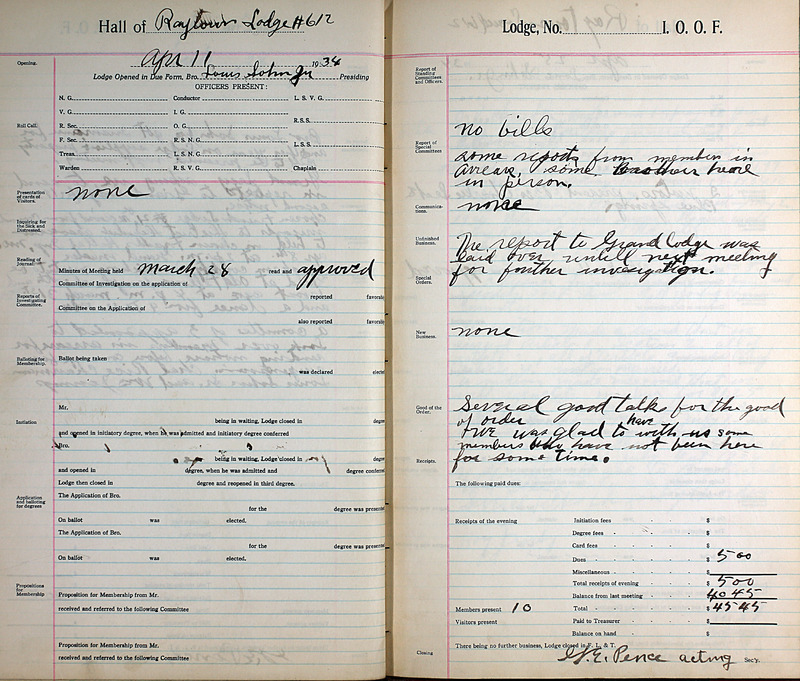 Hall of Raytown Lodge #612
Apr 11 1934
Opening.
Lodge Opened in Due Form, Bro. Louis John Jr Presiding
OFFICERS PRESENT:
N. G. Conductor L. S. V. G.
V. G. I. G. R.S.S.
Roll Call.
R. Sec. O. G.
F. Sec. R. S. N. G. L.S.S.
Treas. L. S. N. G.
Warden R. S. V. G. Chaplain
Presentation of cards of Visitors.
none
Inquiring for the Sick and Distressed.
Reading of Journal.
Minutes of Meeting held March 28 read and approved
Committee of Investigation on the application of
Reports of Investigating Committee.
reported favorab
Committee on the Application of
also reported favorab
Balloting for Membership.
Ballot being taken
was declared elec
Mr.
Initiation
being in waiting, Lodge closed in degre
and opened in initiatory degree, when he was admitted and initiatory degree conferred
Bro.
being in waiting, Lodge closed in degre
and opened in degree, when he was admitted and degree conferre
Lodge then closed in degree and reopened in third degree.
Application and balloting for degrees
The Application of Bro.
for the degree was presente
On ballot was elected.
The Application of Bro.
for the degree was presente
On ballot was elected.
Propositions for Membership
Proposition for Membership from Mr.
received and referred to the following Committee
Proposition for Membership from Mr.
received and referred to the following Committee
Lodge, No. I. O. O. F.
Report of Standing Committees and Officers.
no bills
Report of Special Committees
some reports from members in
arears, some here
in person.
Communications.
none
Unfinished Business.
The report to Grand Lodge was
laid over untill next meeting
for further investigation.
Special Orders.
New Business.
none
Good of the Order.
Several good talks for the good
of order
& we was glad to have with us some
members have not been here
for some time.
Receipts.
The following paid dues:
Receipts of the evening Initiation fees $
Degree fees $
Card fees $
Dues $ 5 00
Miscellaneous $
Total receipts of evening $ 5 00
Balance from last meeting $ 40 45
Members present 10 Total $ 45 45
Visitors present Paid to Treasurer $
Balance on hand $
There being no further business, Lodge closed in F. L. & T.
Closing
G.E. Pence acting Sec'y.